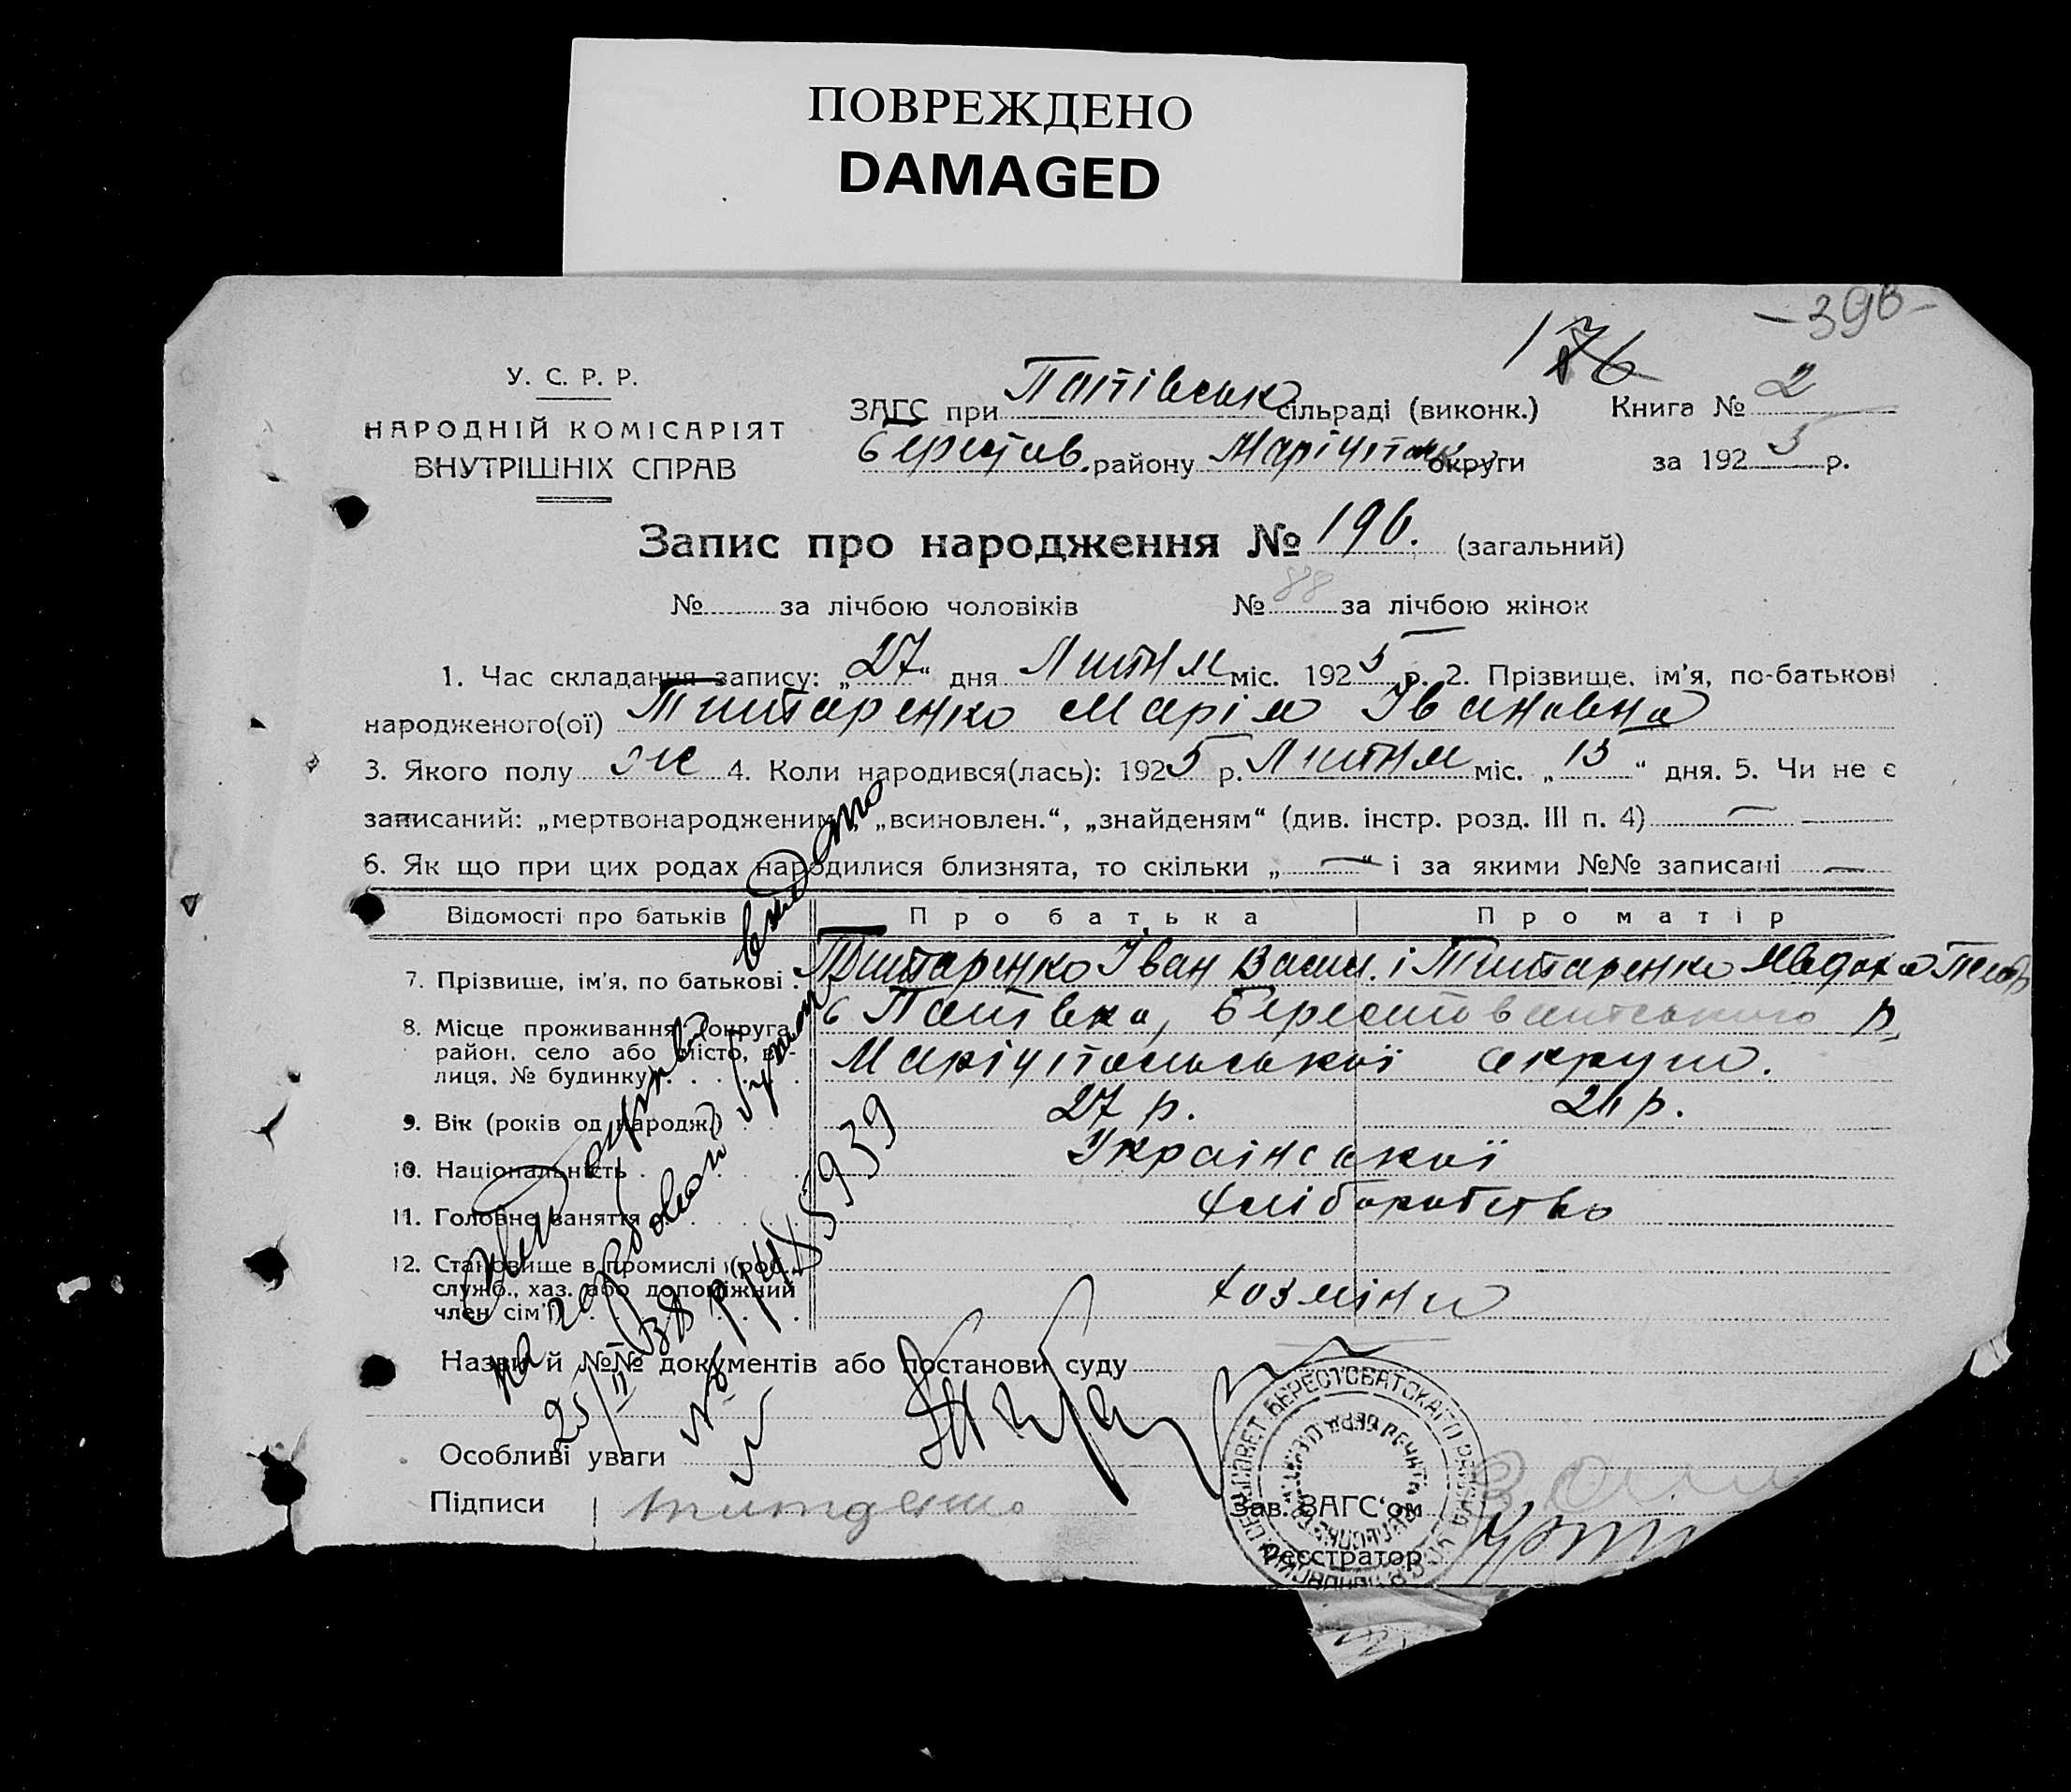 ПОВРЕЖДЕНО
DAMAGED
-396-
176
У. С. Р. Р.
НАРОДНІЙ КОМІСАРІЯТ
ВНУТРІШНІХ СПРАВ
ЗАГС при Попівськ сільраді (виконк.) Книга № 2
Берестов. району Маріупол округи за 1925 р.
Запис про народження № 196. (загальний)
№ за лічбою чоловіків № 88 за лічбою жінок
1. Час складання запису: „27“ дня Липня міс. 1925 р. 2. Прізвище, ім'я, по-батькові
народженого(ої) Титаренко Марія Івановна
3. Якого полу ж 4. Коли народився(лась): 1925 р. Липня міс. „13“ дня. 5. Чи не є
записаний: „мертвонародженим“, „всиновлен.“, „знайденям“ (див. інстр. розд. III п. 4) —
6. Як що при цих родах народилися близнята, то скільки „—“ і за якими №№ записані —
Відомості про батьків Про батька Про матір
7. Прізвище, ім'я, по батькові Титаренко Іван Васил. і Титаренко Явдоха
8. Місце проживання (округа, район, село або місто, вулиця, № будинку) с Попівка, Берестоватського р.
Маріупольської округи.
9. Вік (років од народж.) 27 р. 24 р.
10. Національність Української
11. Головне заняття хліборобство
12. Становище в промислі (роб., служб., хаз. або допоміжний член сім'ї) хозяїни
Назви й №№ документів або постанови суду
Особливі уваги
Підписи
Зав. ЗАГС'ом
Реєстратор
видано
25/II 38 р
№